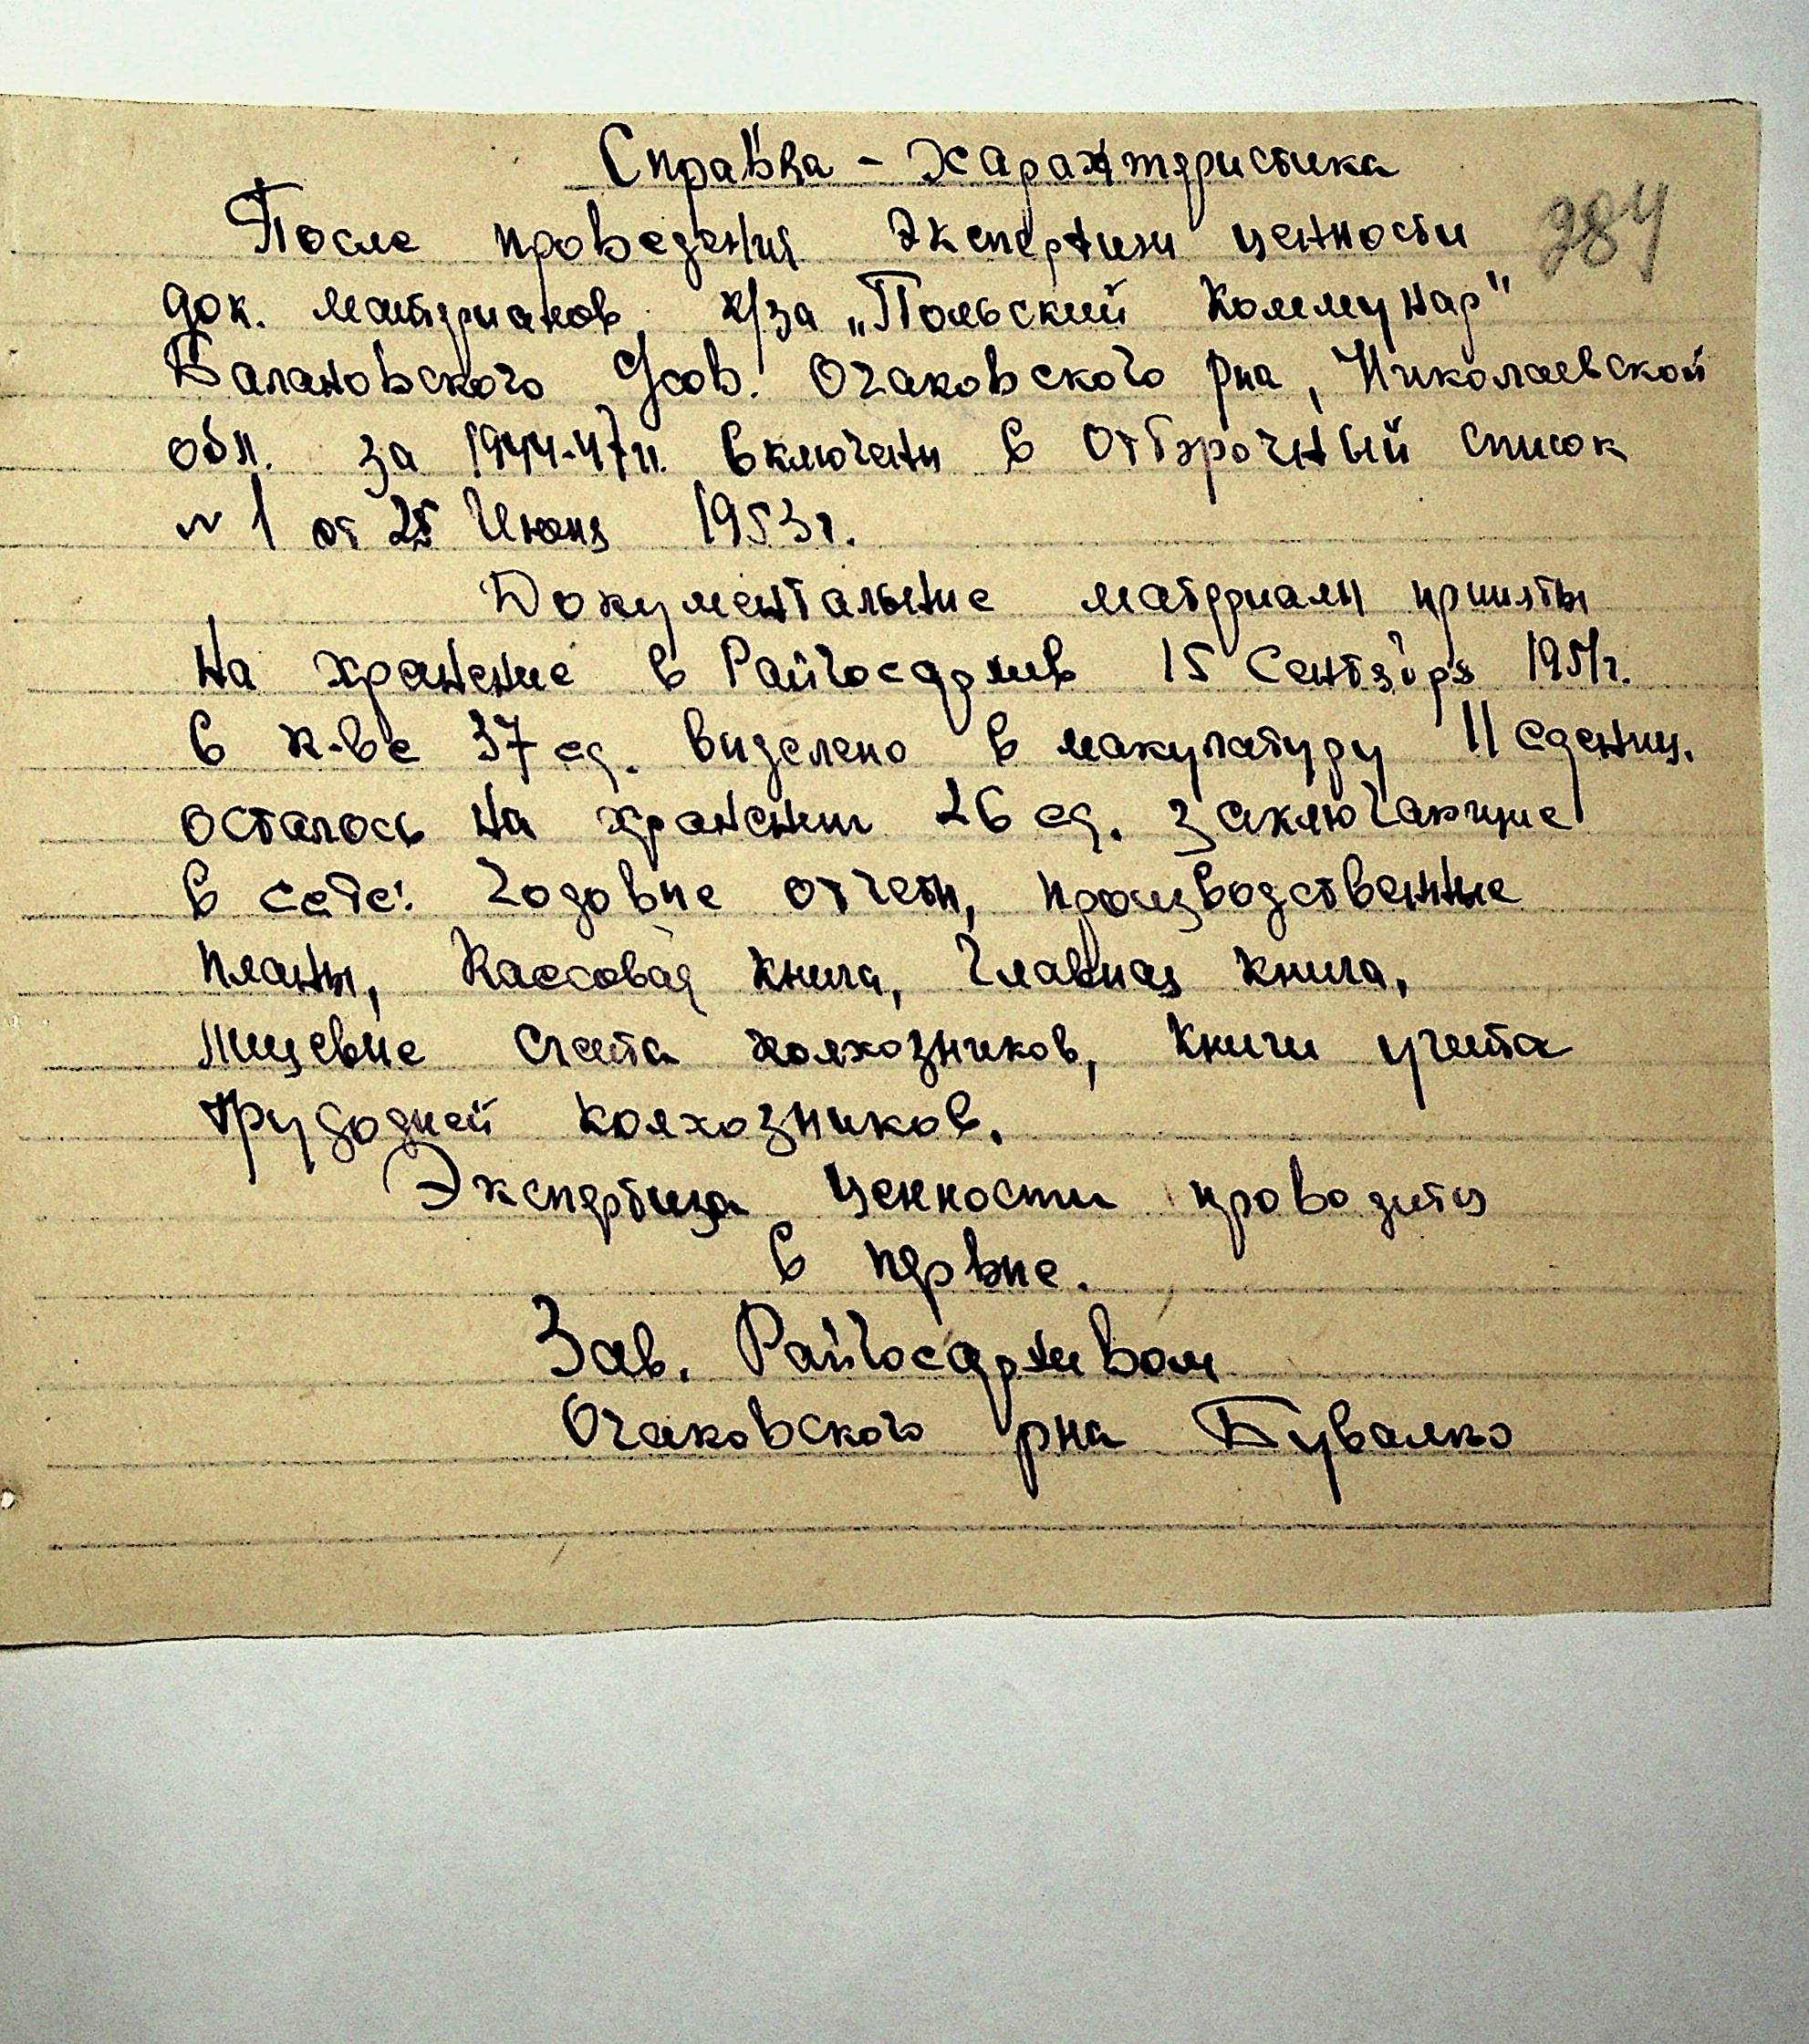 Справка - Характеристика
После проведения Экспертизи ценности 284
док. материалов к/за „Польский Коммунар"
Балановского с/сов. Очаковского р-на, Николаевской
обл. за 1944-47гг. включени в Отборочный список
№ 1 от 25 Июня 1953г.
Документальние материали приняты
на хранение в Райгосархив 15 Сентября 1951г.
в к-ве 37 ед. виделено в макулатуру 11 едениц.
осталось на хранении 26 ед. заключающие
в себе: Годовие отчети, производственные
планы, Кассовая книга, Главная книга,
Лицевие счета колхозников, Книги учета
трудодней колхозников.
Экспертиза ценности проводится
в первие.
Зав. Райгосархивом
Очаковского р-на Бувалко